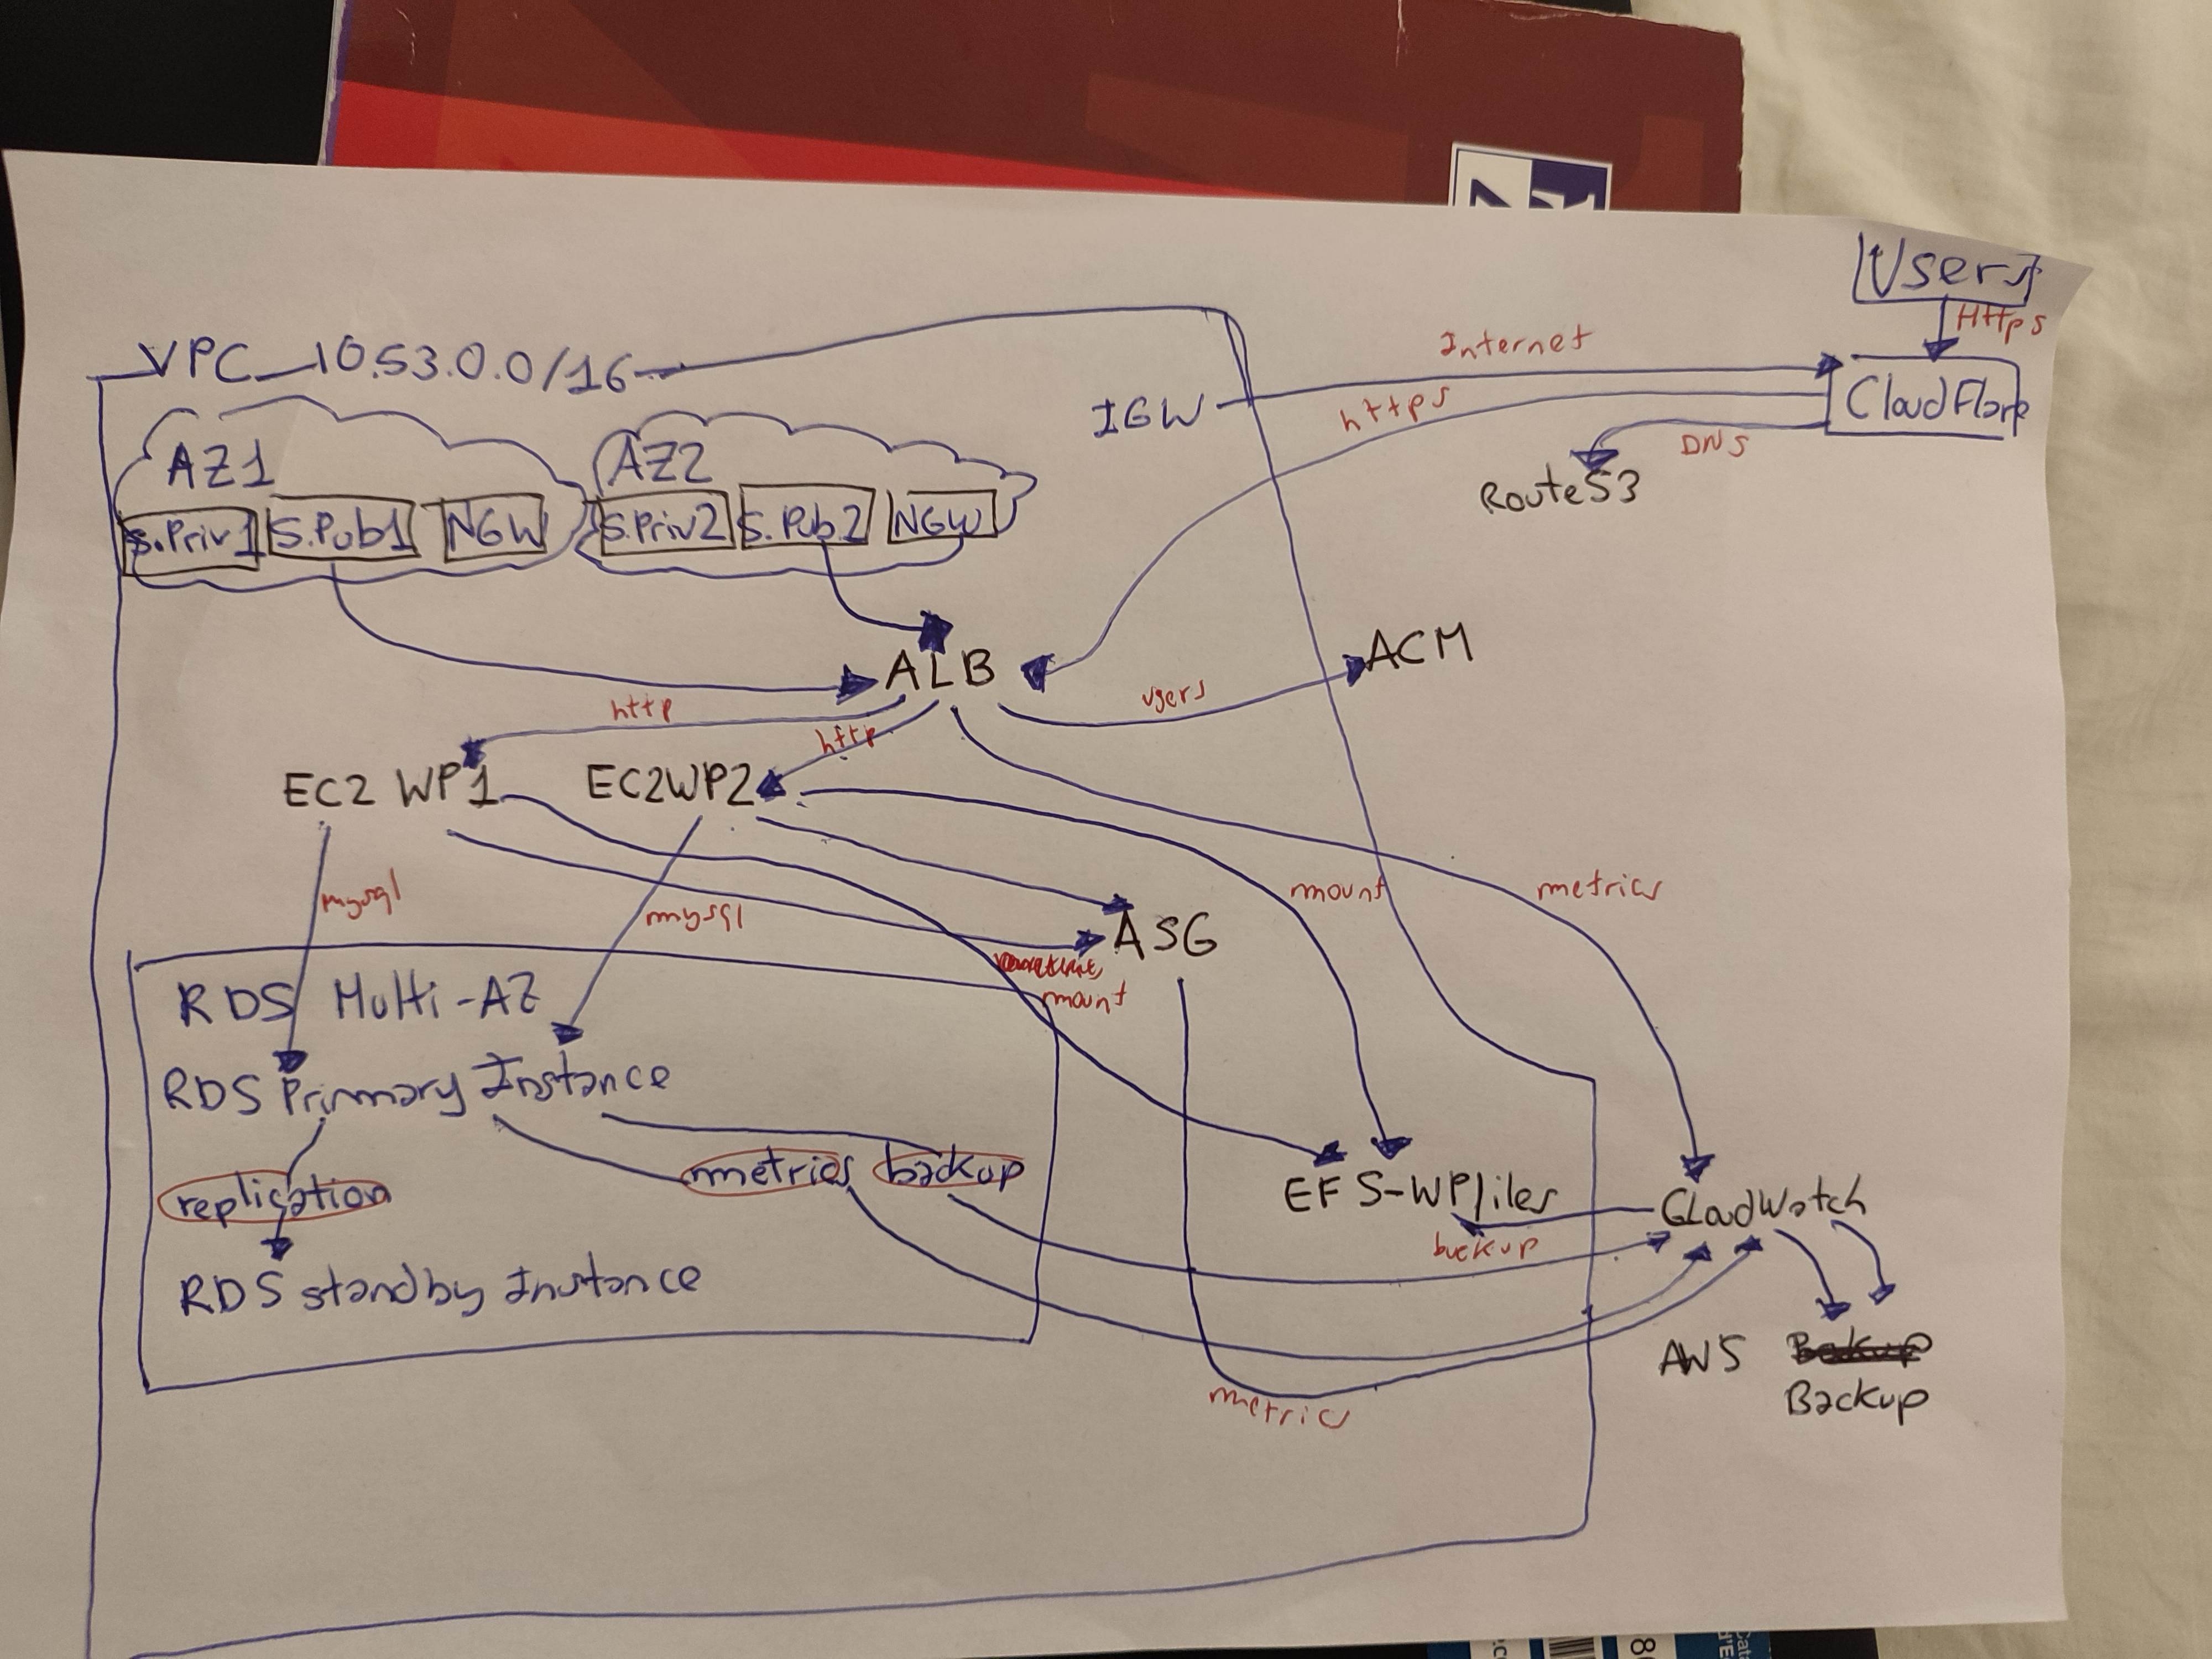 Users
Https
VPC 10.53.0.0/16
Internet
IGW
https
CloudFlare
DNS
Route53
AZ1
AZ2
S.Priv1
S.Pub1
NGW
S.Priv2
S.Pub2
NGW
ALB
ACM
http
http
EC2 WP1
EC2WP2
mysql
mysql
mount
metrics
ASG
mount
RDS Multi-AZ
RDS Primary Instance
metrics
backup
replication
RDS standby Instance
EFS-WPfiles
CloudWatch
backup
AWS
Backup
metrics